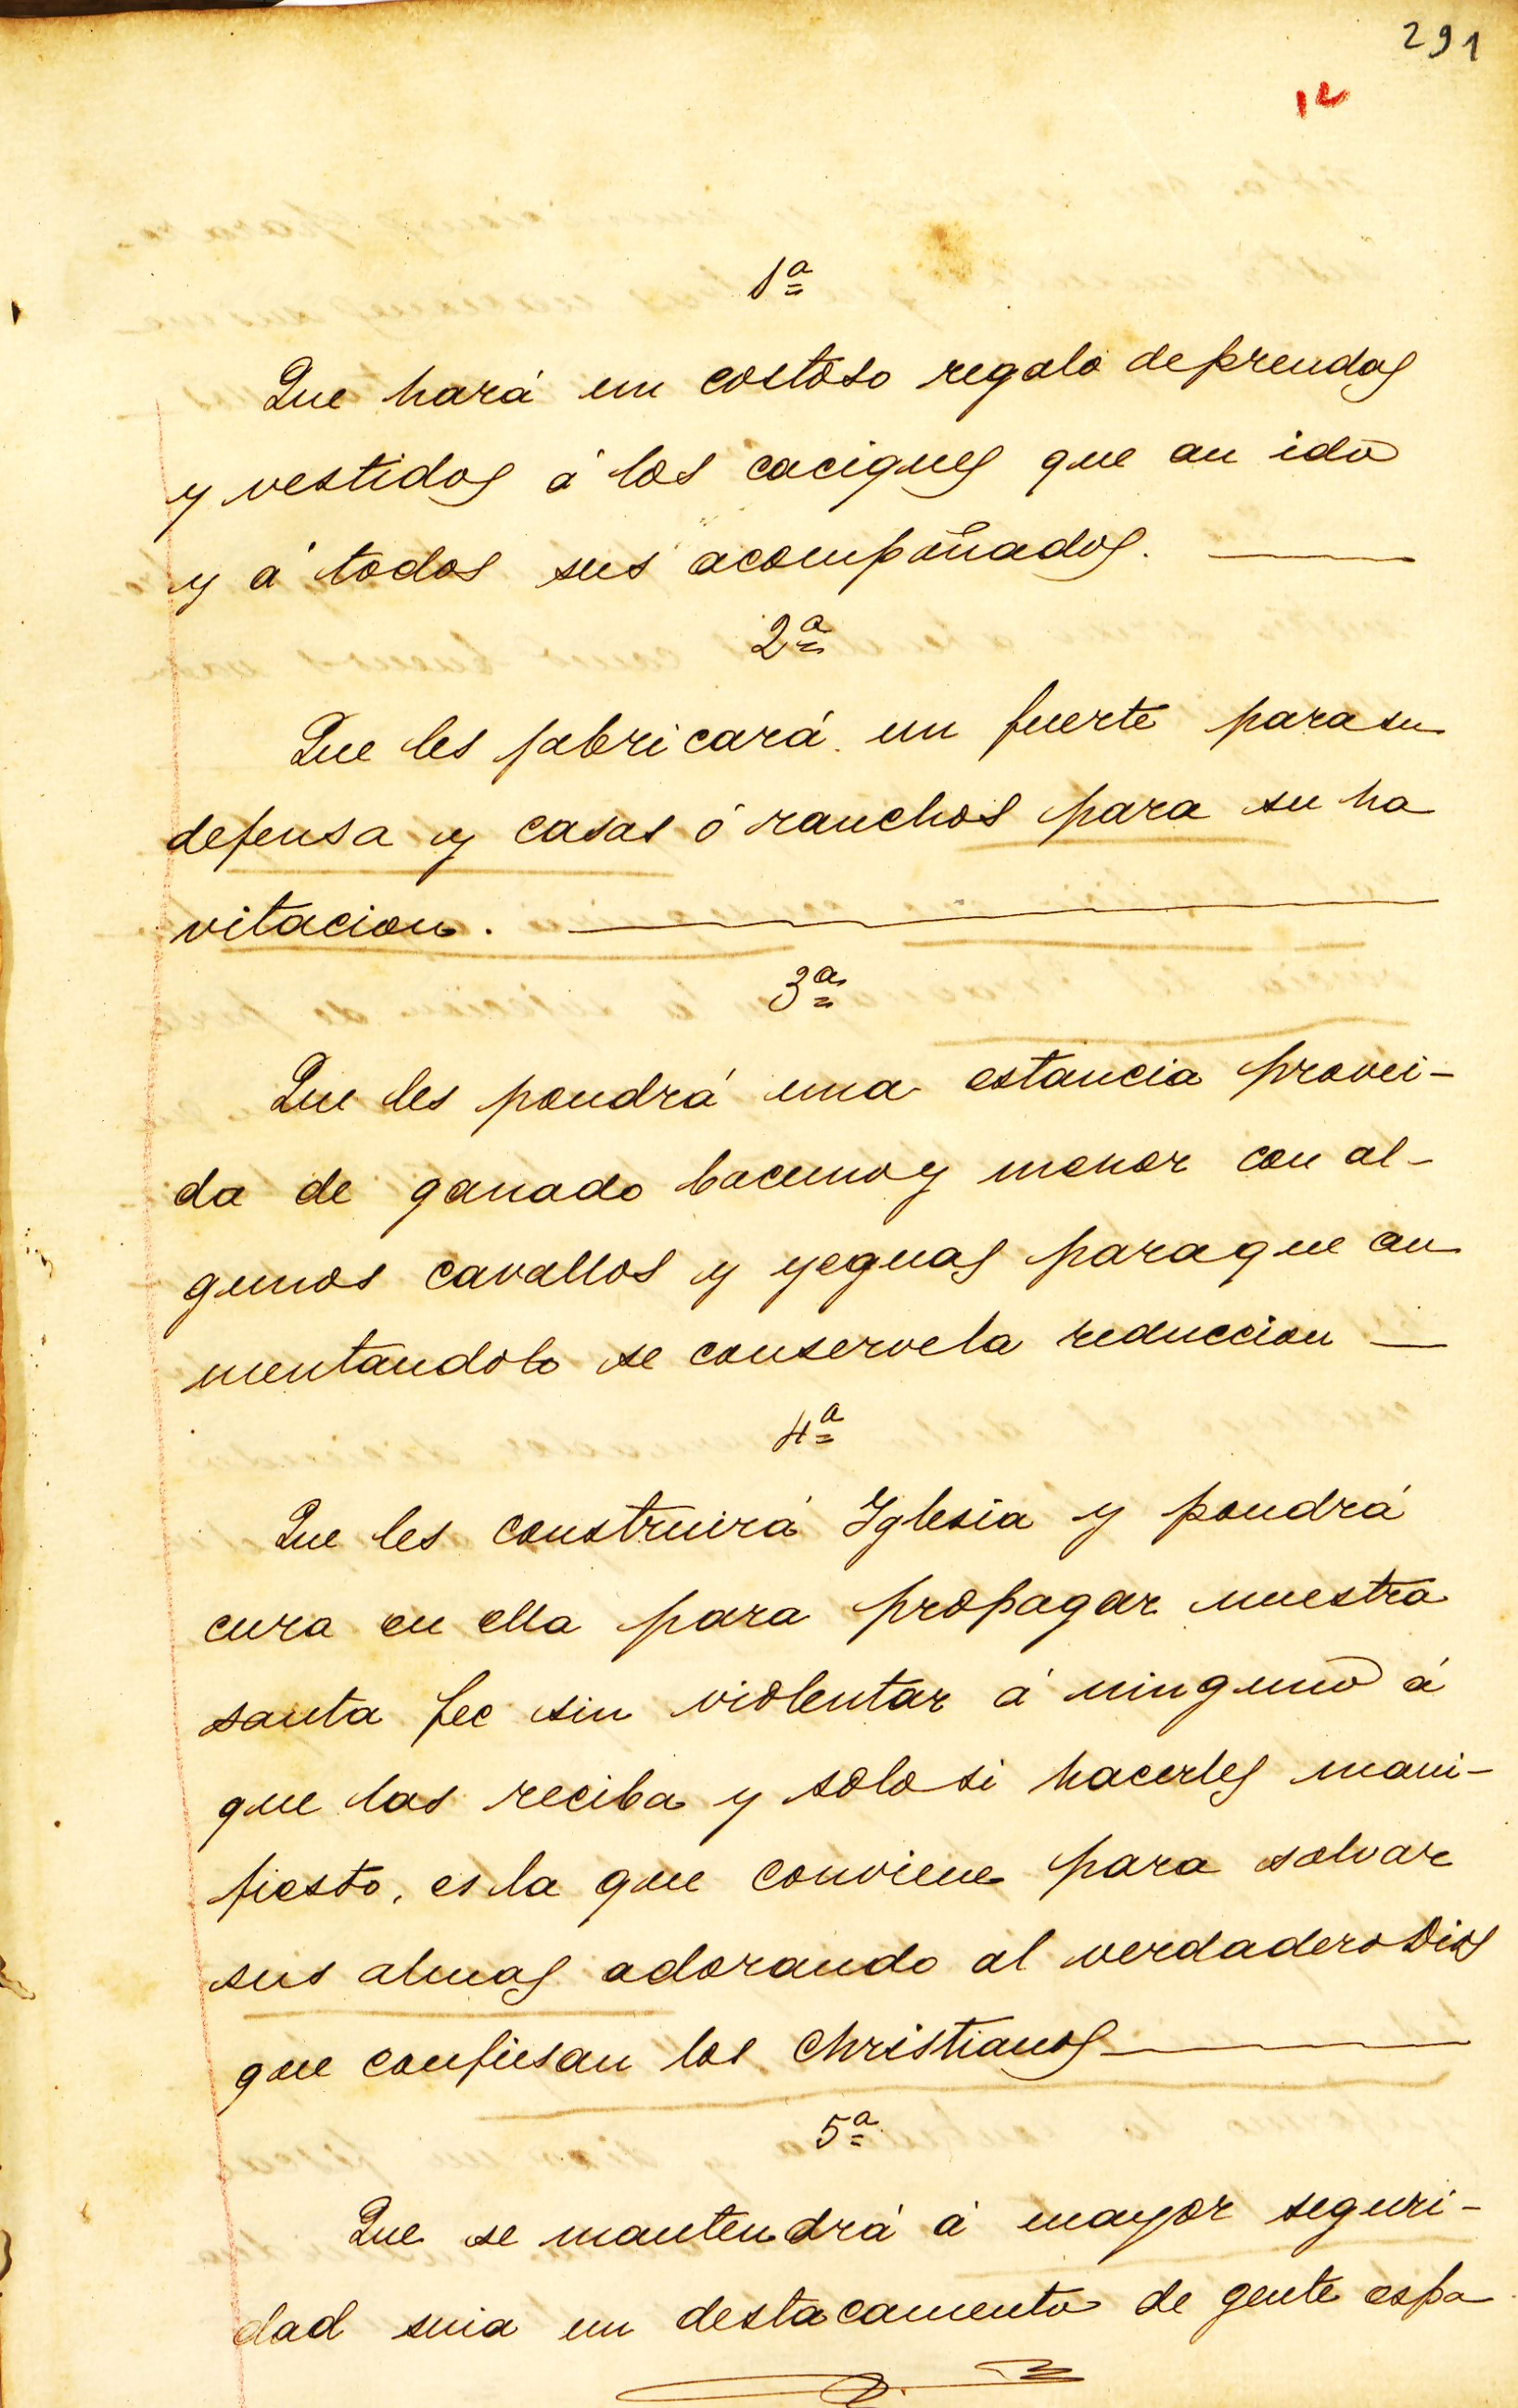 291
12
1ª
Que hará un costoso regalo de prendas
y vestidos á los caciques que an ido
y á todos sus acompañados.
2ª
Que les fabricará un fuerte para su
defensa y casas ó ranchos para su ha
vitacion.
3ª
Que les pondrá una estancia provei-
da de ganado bacuno y menor con al-
gunos cavallos y yeguas para que au
mentandolo se conserve la reduccion
4ª
Que les construirá Yglesia y pondrá
cura en ella para propagar nuestra
santa fee sin violentar á ninguno á
que las reciba y solo si hacerles mani-
fiesto, es la que conviene para salvar
sus almas adorando al verdadero Dios
que confiesan los Christianos
5ª
Que se mantendrá á mayor seguri-
dad suia un destacamento de gente espa